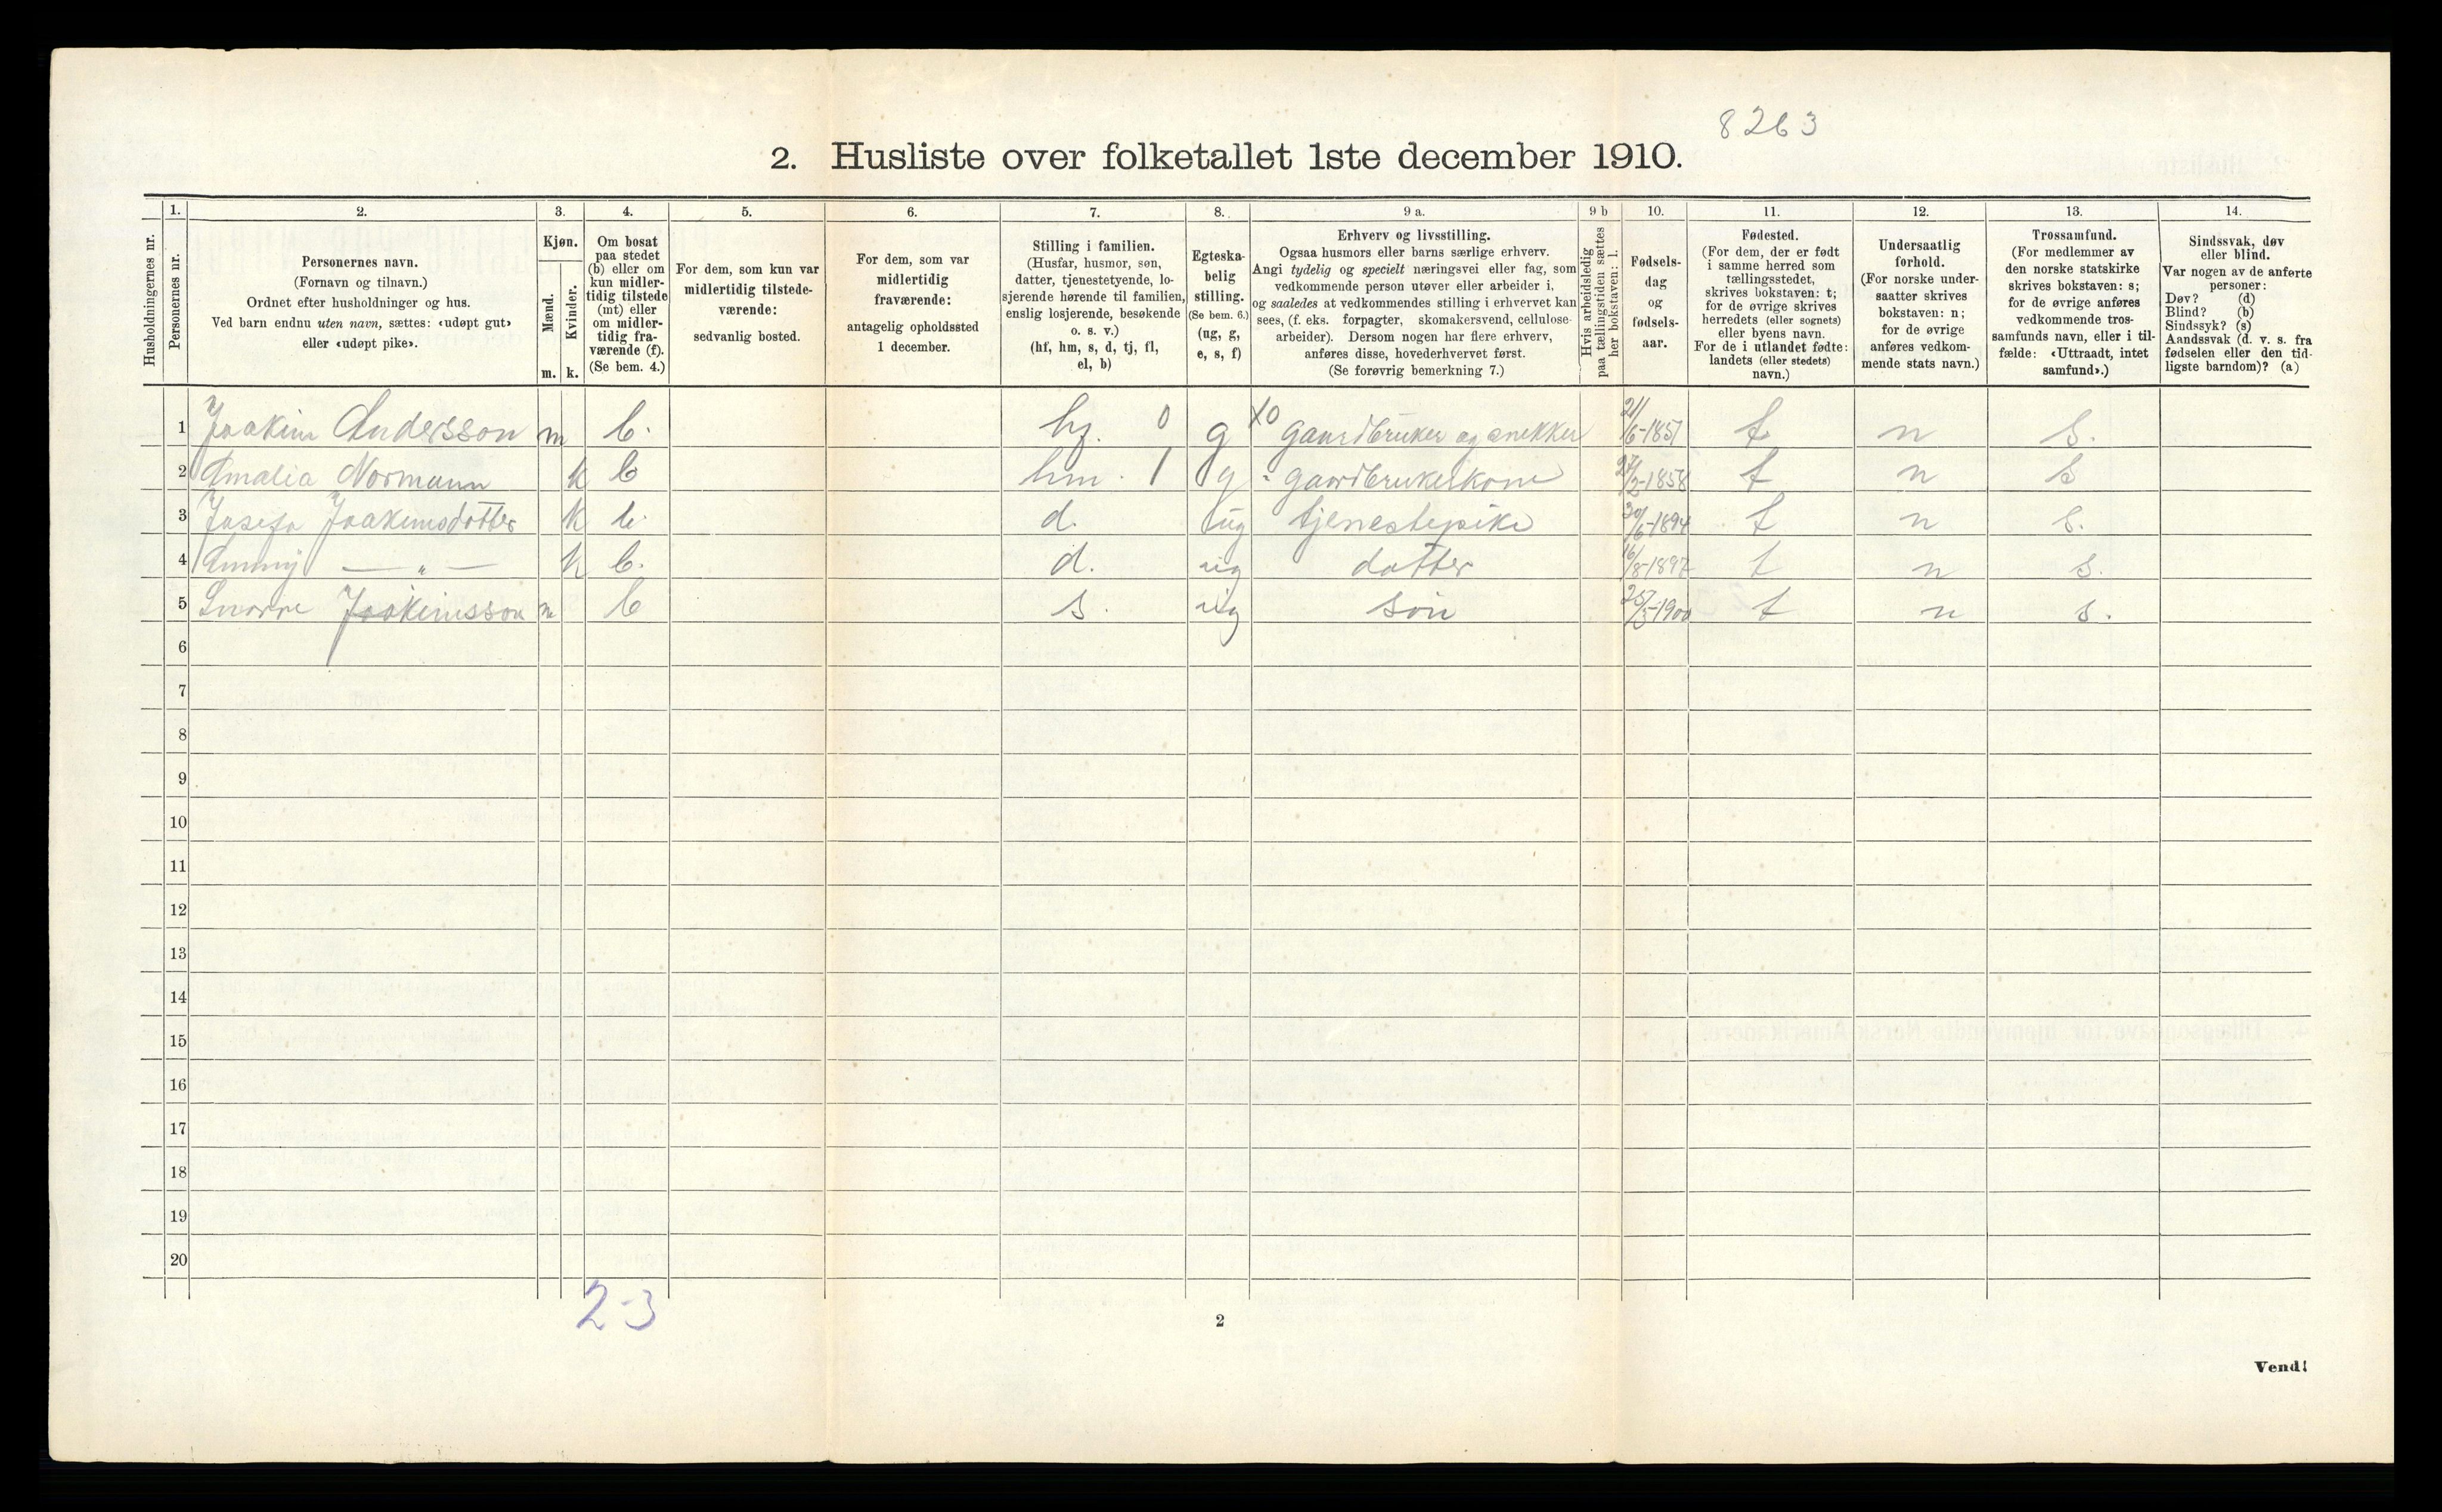 8263
2. Husliste over folketallet 1ste december 1910.
Husholdningernes nr.
1.
Personernes nr.
2.
Personernes navn.
(Fornavn og tilnavn.)
Ordnet efter husholdninger og hus.
Ved barn endnu uten navn, sættes: «udøpt gut»
eller «udøpt pike».
3.
Kjøn.
Mænd.
Kvinder.
m. k.
4.
Om bosat
paa stedet
(b) eller om
kun midler-
tidig tilstede
(mt) eller
om midler-
tidig fra-
værende (f).
(Se bem. 4.)
5.
For dem, som kun var
midlertidig tilstede-
værende:
sedvanlig bosted.
6.
For dem, som var
midlertidig
fraværende:
antagelig opholdssted
1 december.
7.
Stilling i familien.
(Husfar, husmor, søn,
datter, tjenestetyende, lo-
sjerende hørende til familien,
enslig losjerende, besøkende
o. s. v.)
(hf, hm, s, d, tj, fl,
el, b)
8.
Egteska-
belig
stilling.
(Se bem. 6.)
(ug, g,
e, s, f)
9 a.
Erhverv og livsstilling.
Ogsaa husmors eller barns særlige erhverv.
Angi tydelig og specielt næringsvei eller fag, som
vedkommende person utøver eller arbeider i,
og saaledes at vedkommendes stilling i erhvervet kan
sees, (f. eks. forpagter, skomakersvend, cellulose-
arbeider). Dersom nogen har flere erhverv,
anføres disse, hovederhvervet først.
(Se forøvrig bemerkning 7.)
9 b
Hvis arbeidsledig
paa tællingstiden sættes
her bokstaven: l.
10.
Fødsels-
dag
og
fødsels-
aar.
11.
Fødested.
(For dem, der er født
i samme herred som
tællingsstedet,
skrives bokstaven: t;
for de øvrige skrives
herredets (eller sognets)
eller byens navn.
For de i utlandet fødte:
landets (eller stedets)
navn.)
12.
Undersaatlig
forhold.
(For norske under-
saatter skrives
bokstaven: n;
for de øvrige
anføres vedkom-
mende stats navn.)
13.
Trossamfund.
(For medlemmer av
den norske statskirke
skrives bokstaven: s;
for de øvrige anføres
vedkommende tros-
samfunds navn, eller i til-
fælde: «Uttraadt, intet
samfund».)
14.
Sindssvak, døv
eller blind.
Var nogen av de anførte
personer:
Døv? (d)
Blind? (b)
Sindssyk? (s)
Aandssvak (d. v. s. fra
fødselen eller den tid-
ligste barndom)? (a)
1 Joakim Andersson m b. hf. 0 g X0 gaardbruker og snekker 21/6-1857 t n s.
2 Amalia Normann k b hm. 1 g : gardbrukerkone 27/2-1858 t n s
3 Josefa Joakimsdotter k b. d. ug tjenestepike 30/6-1894 t n s.
4 Ammy — „ — k b. d. ug dotter 16/8-1897 t n s.
5 Snorre Joakimsson m b s. ug sön 25/5-1900 t n s.
6
7
8
9
10
11
12
13
14
15
16
17
18
19
20
2-3
2
Vend!